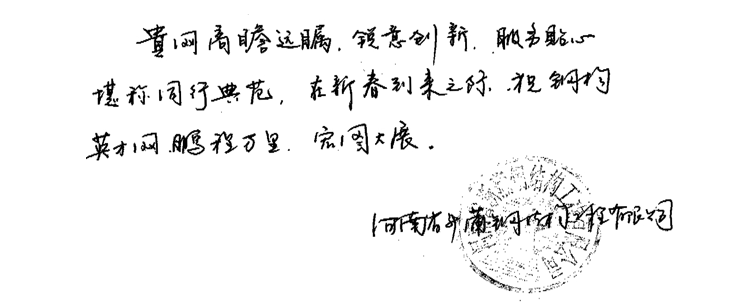 貴网高瞻远瞩,锐意创新,服务贴心
堪称同行典范,在新春到来之际,祝钢构
英才网鹏程万里,宏图大展。
河南省蒲钢结构工程有限公司